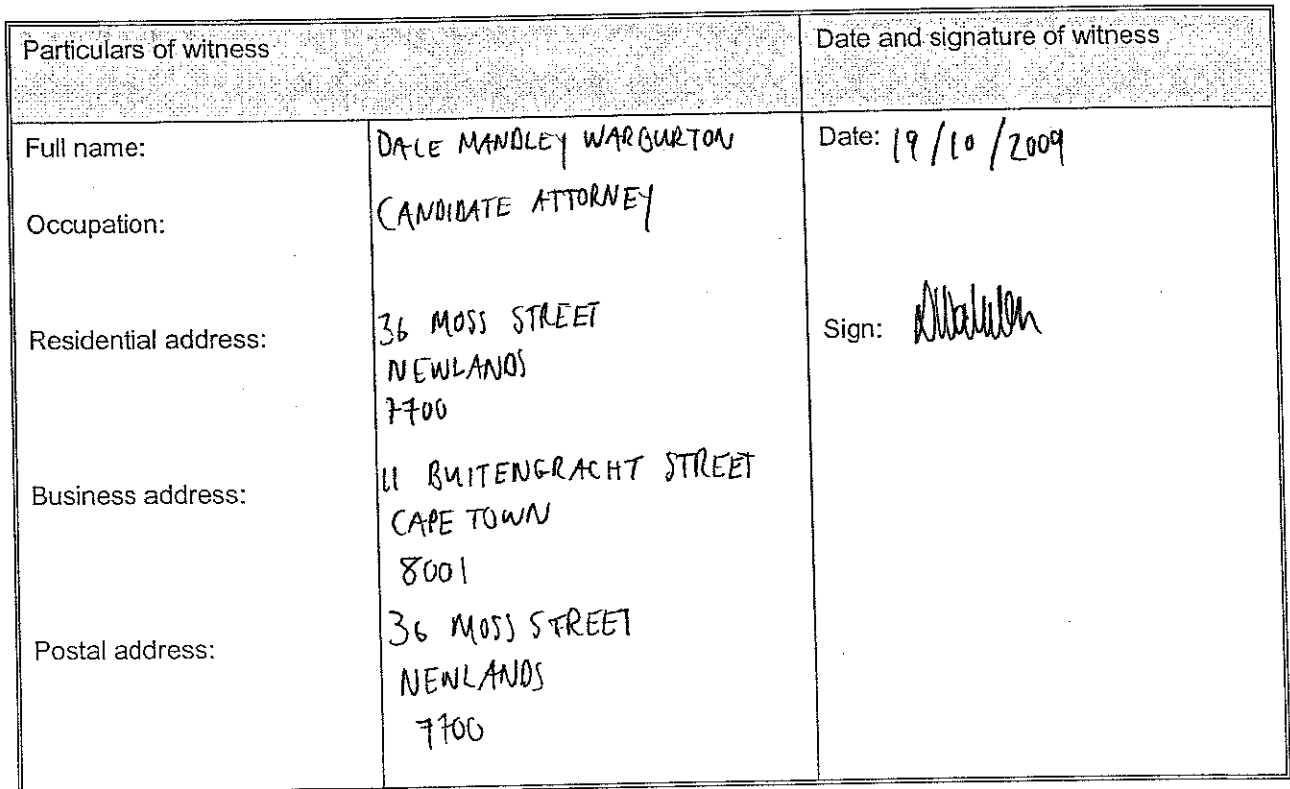 Particulars of witness
Date and signature of witness
Full name: DALE MANDLEY WARBURTON
Date: 19/10/2009
Occupation: CANDIDATE ATTORNEY
Residential address: 36 MOSS STREET
NEWLANDS
7700
Sign:
Business address: 11 BUITENGRACHT STREET
CAPE TOWN
8001
Postal address: 36 MOSS STREET
NEWLANDS
7700